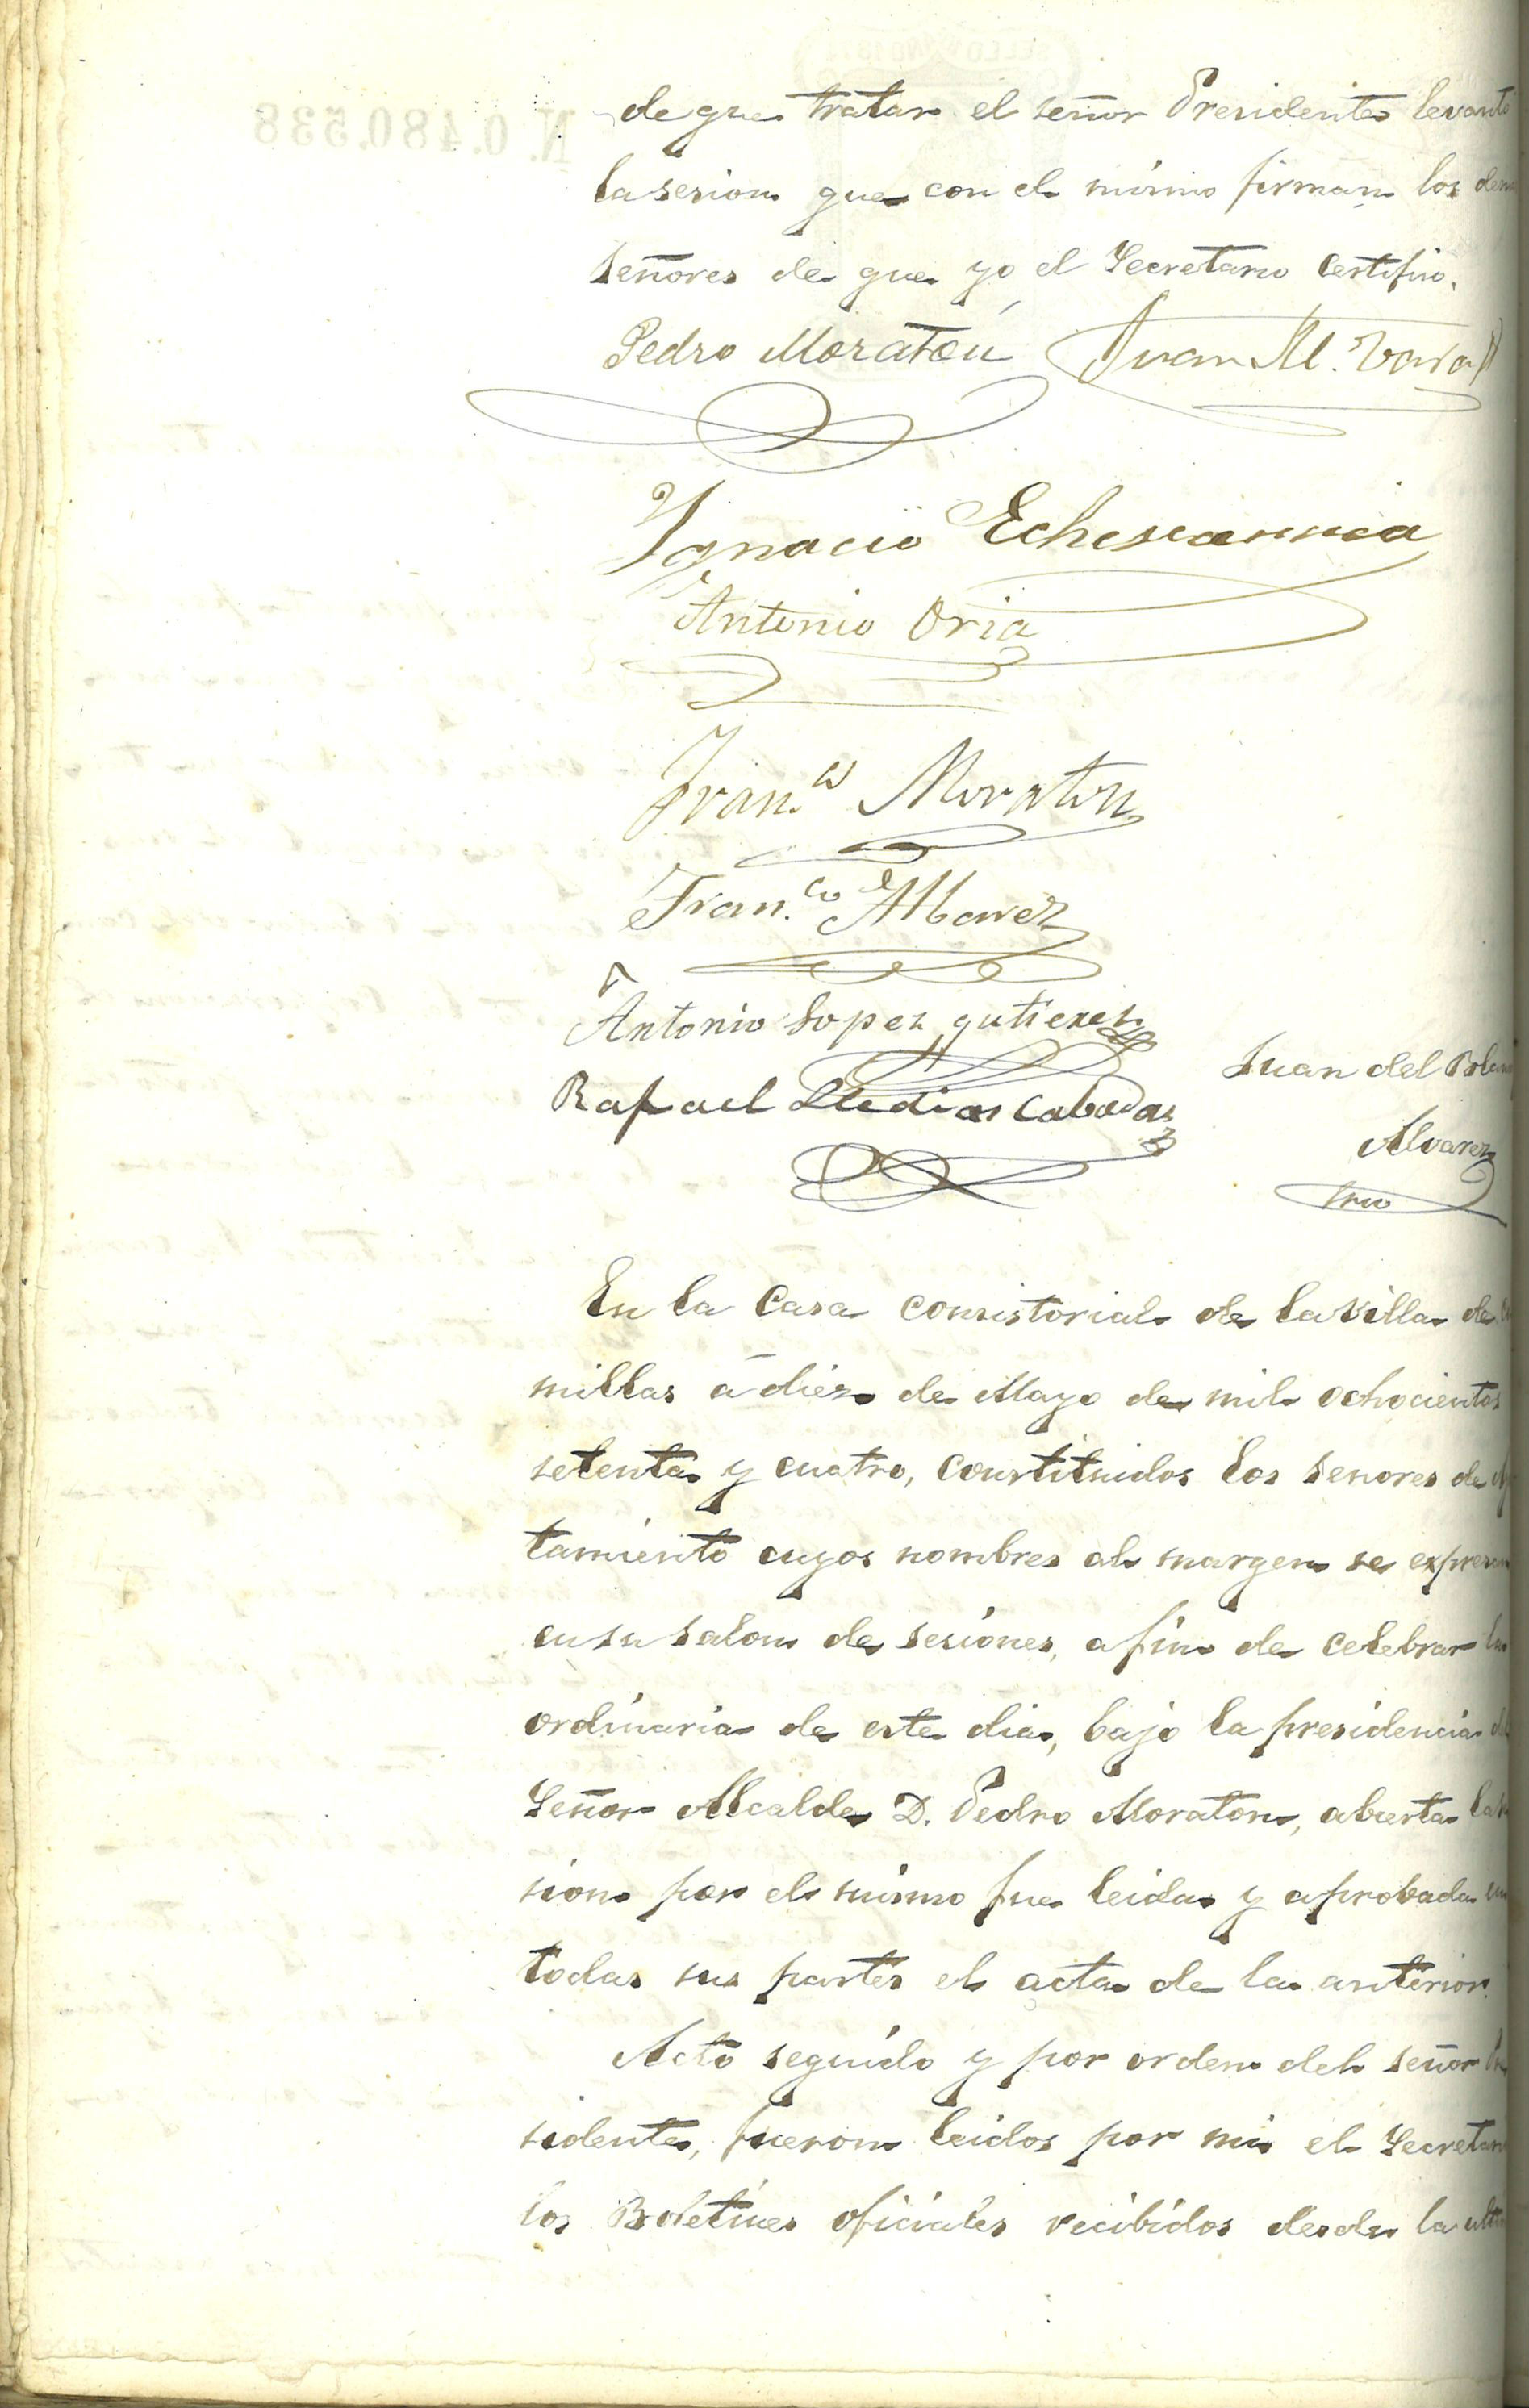 de que tratar el señor Presidente levantó
la sesion que con el mismo firman los
señores de que yo el Secretario certifico.
Pedro Moratón Juan M. Vara
Ygnacio Echevarria
Antonio Oria
Fran.co Moraton
Fran.co Albarez
Antonio Lopez gutierrez
Juan del Blan
Rafael Lledias Cabadas
Alvarez
Srio
En la Casa consistorial de la Villa de
millas á diez de Mayo de mil ochocientos
setenta y cuatro, constituidos los señores de
tamiento cuyos nombres al margen se expresan
en su salon de sesiones, a fin de celebrar la
ordinaria de este dia, bajo la presidencia
Señor Alcalde D. Pedro Moraton, abierta la
sion por el mismo fue leida y aprobada en
todas sus partes el acta de la anterior.
Acto seguido y por orden del señor
sidente, fueron leidos por mi el Secretario
los Boletines oficiales recibidos desde la
N. 0.480.538